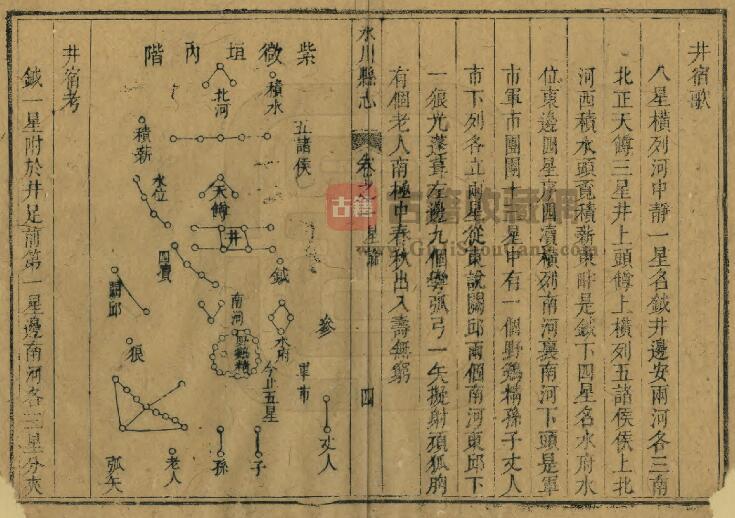 井宿歌
八星橫列河中靜一星名鉞井邊安兩河各三南
北正天罇三星井上頭罇上橫列五諸侯侯上北
河西積水頭覔積薪東畔是鉞下四星名水府水
位東邊四星序四瀆橫列南河裏南河下頭是軍
市軍市團圓十三星中有一個野鷄精孫子丈人
市下列各立兩星從東說闕邱兩個南河東邱下
一狼光蓬茸左邊九個彎弧弓一矢擬射頑狐胸
有個老人南極中春秋出入壽無窮
永川縣志
卷之
星論
四
紫微垣內階
北河
積水
五諸侯
積薪
水位
天罇
井
四瀆
鉞
闕邱
南河
參
水府
狼
今止五星
軍市
弧矢
老人
孫
子
丈人
井宿考
鉞一星附於井足前第一星邊南河各三星分夾
古籍
古籍收藏網
www.GuJiShouCang.com